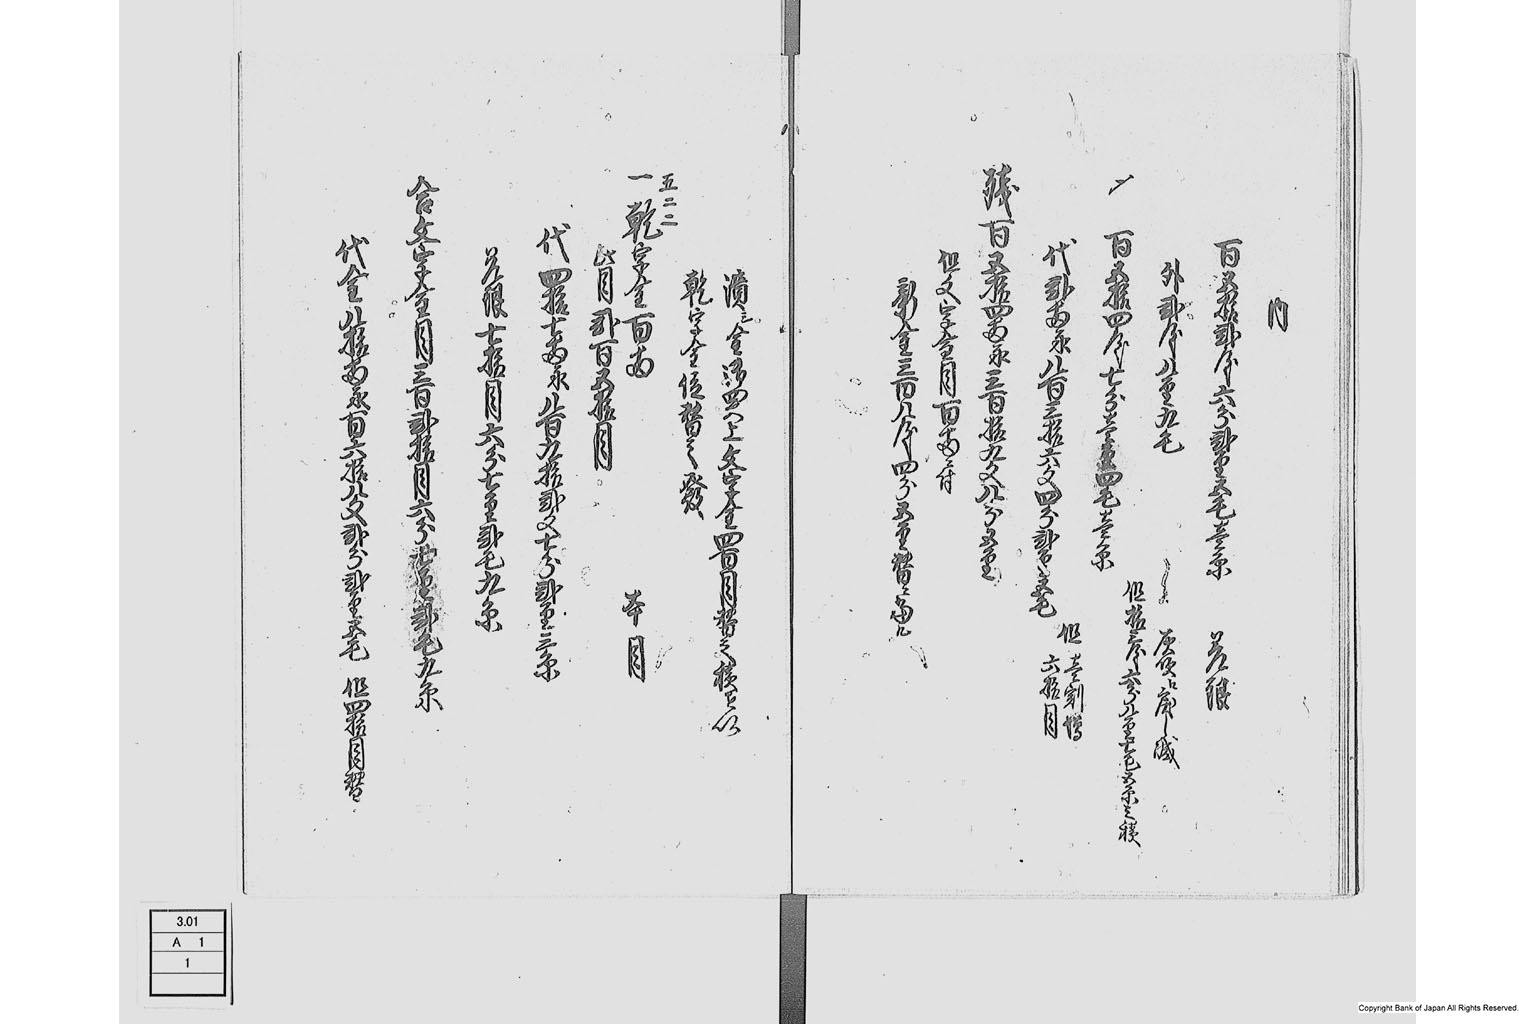 内
百五拾弐匁六分弐厘五毛壱糸 差銀
外弐匁八厘九毛 灰吹ニ而減
一 百五拾四匁七分壱厘四毛壱糸 但拾三匁六分八厘七毛五糸之積
代弐両永八百三拾六文四分弐厘五毛 但壱割増 六拾目
残百五拾四両永三百拾九文八分五厘
但文字金目百両ニ付
新金三百八匁四分五厘替ニ当ル
潰シ金位四ツ上文字金四百目替之積を以
乾字金位替之発
五二二
一 乾字金百両 本目
此目弐百五拾目
代四拾七両永八百九拾弐文七分弐厘三糸
差銀七拾目六分七厘弐毛九糸
合文字金目三百弐拾目六分七厘弐毛九糸
代金八拾両永百六拾八文弐分弐厘五毛 但四拾目替
3.01
A 1
1
Copyright Bank of Japan All Rights Reserved.